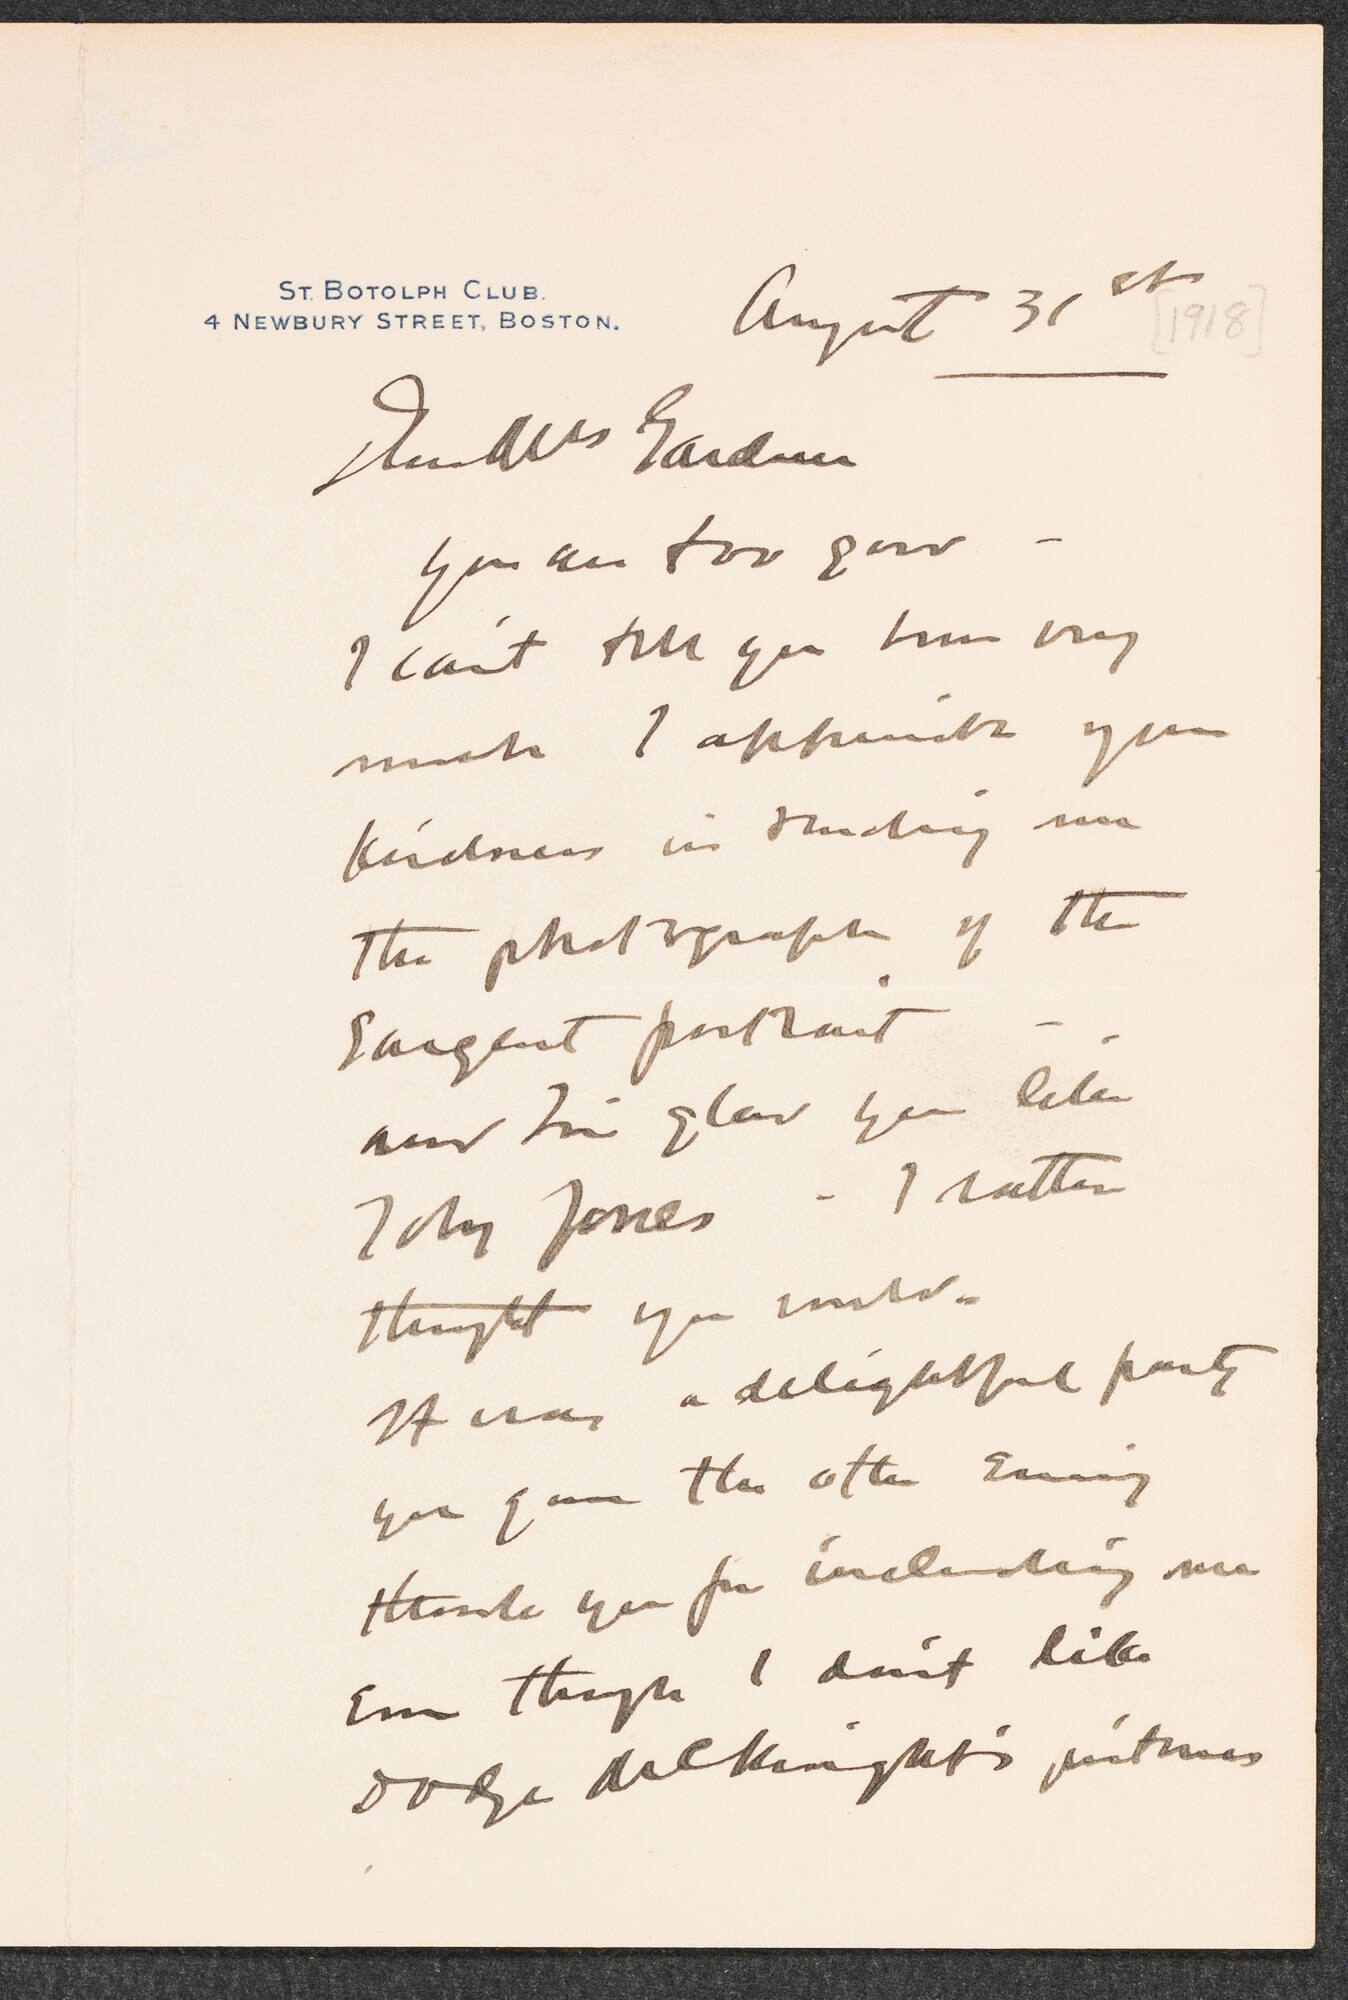 ST. BOTOLPH CLUB.
4 NEWBURY STREET, BOSTON.
August 31st
[1918]
Dear Mrs Gardner
you are too good -
I can't tell you how very
much I appreciate your
kindness in sending me
the photographs of the
Sargent portrait -
and I'm glad you like
Toby Jones - I rather
thought you would -
It was a delightful party
you gave the other evening
thank you for including me
even though I don't like
Dodge MacKnight's pictures